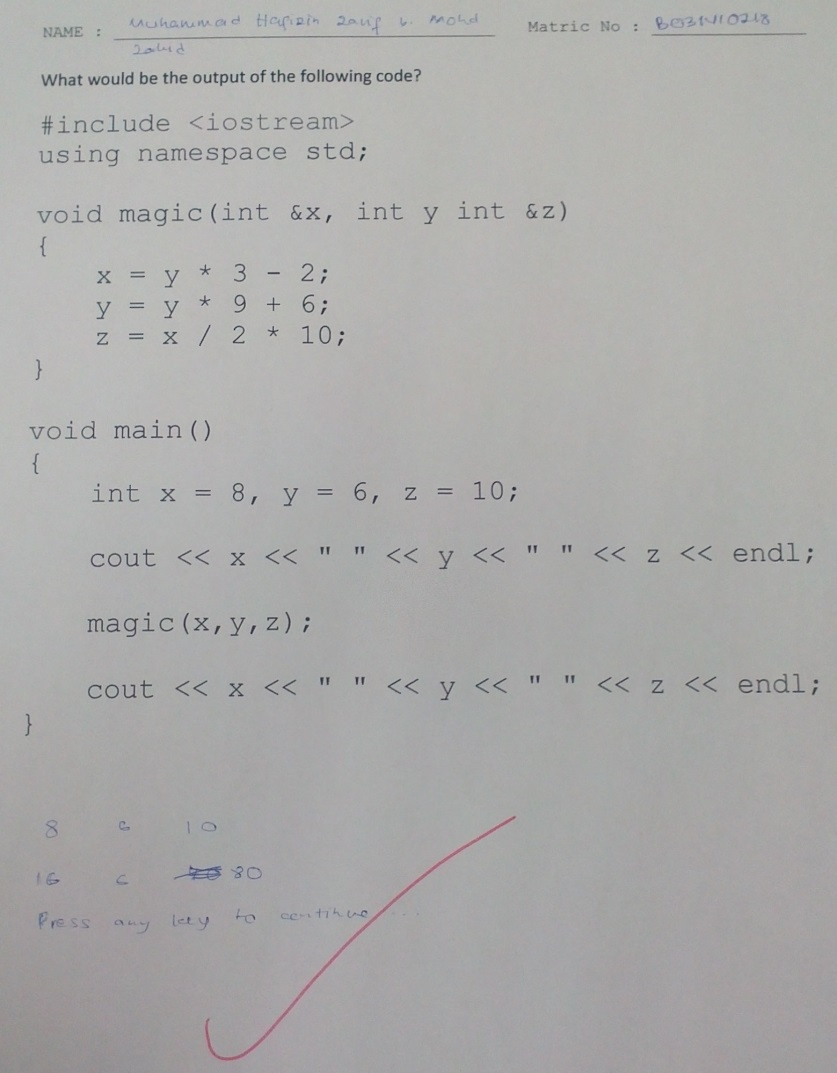 NAME : Muhammad Hafizin Zarif b. Mohd Matric No : B031410218
Zahid
What would be the output of the following code?
#include <iostream>
using namespace std;
void magic(int &x, int y int &z)
{
x = y * 3 - 2;
y = y * 9 + 6;
z = x / 2 * 10;
}
void main()
{
int x = 8, y = 6, z = 10;
cout << x << " " << y << " " << z << endl;
magic(x,y,z);
cout << x << " " << y << " " << z << endl;
}
8 6 10
16 6 80
Press any key to continue...